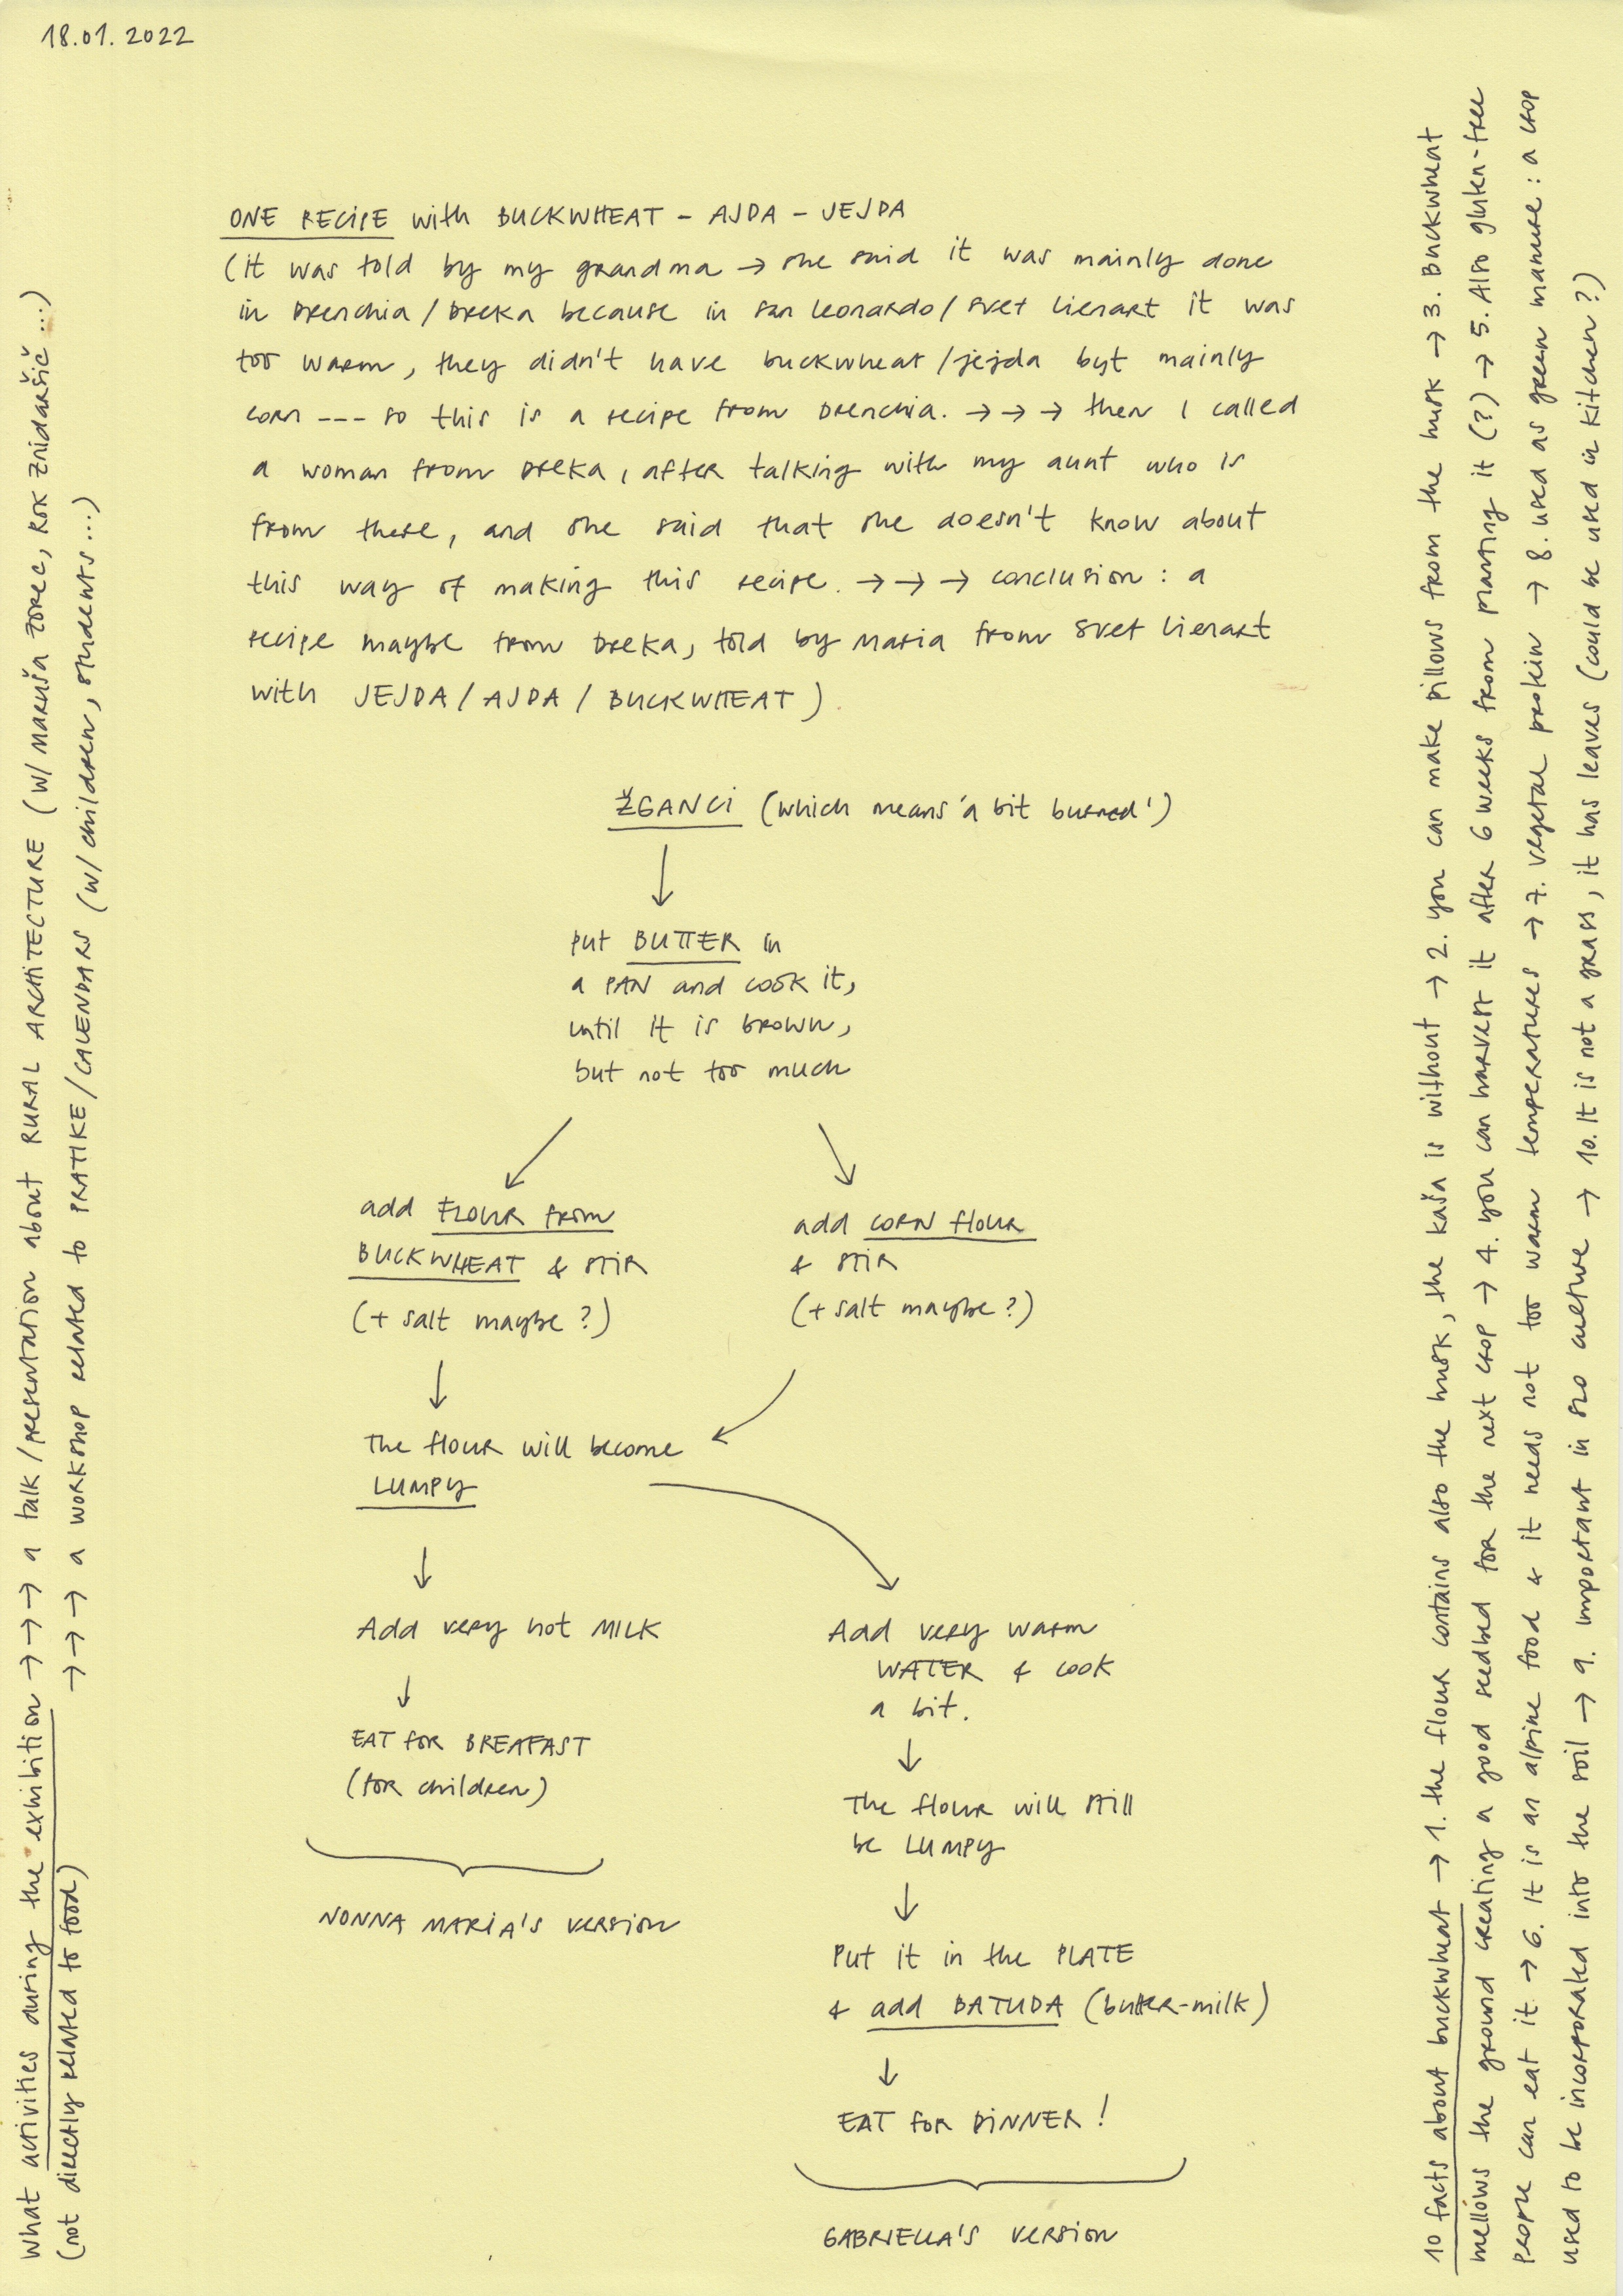 18.01.2022
ONE RECIPE with BUCKWHEAT - AJDA - JEJDA
(it was told by my grandma → she said it was mainly done
in Drenchia / Dreka because in San Leonardo / Svet Lienart it was
too warm, they didn't have buckwheat / jejda byt mainly
corn --- so this is a recipe from Drenchia. → → → then I called
a woman from Dreka, after talking with my aunt who is
from there, and she said that she doesn't know about
this way of making this recipe. → → → conclusion : a
recipe maybe from Dreka, told by Maria from Svet Lienart
with JEJDA / AJDA / BUCKWHEAT)
ŽGANCI (which means 'a bit burned')
put BUTTER in
a PAN and cook it,
until it is brown,
but not too much
add FLOUR from
BUCKWHEAT & STIR
(+ salt maybe ?)
add CORN flour
& STIR
(+ salt maybe ?)
The flour will become
LUMPY
Add very hot MILK
EAT for BREAFAST
(for children)
NONNA MARIA'S VERSION
Add very warm
WATER & cook
a bit.
The flour will still
be LUMPY
Put it in the PLATE
& add BATUDA (butter-milk)
EAT for DINNER !
GABRIELLA'S VERSION
What activities during the exhibition → → → a talk / presentation about RURAL ARCHITECTURE (w/ Maruša Zorec, Rok Žnidaršič ...)
(not directly related to food) → → → a workshop related to PRATIKE / CALENDARS (w/ children, students ...)
10 facts about buckwheat → 1. the flour contains also the husk, the kaša is without → 2. you can make pillows from the husk → 3. Buckwheat
mellows the ground creating a good seedbed for the next crop → 4. you can harvest it after 6 weeks from planting it (?) → 5. Also gluten-free
people can eat it → 6. It is an alpine food & it needs not too warm temperatures → 7. vegetal protein → 8. used as green manure : a crop
used to be incorporated into the soil → 9. important in SLO culture → 10. It is not a grass, it has leaves (could be used in kitchen ?)